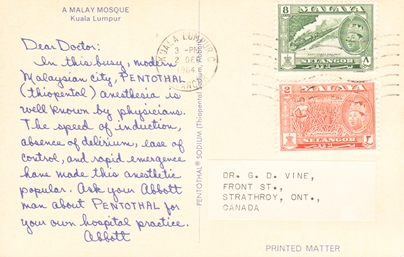 A MALAY MOSQUE
Kuala Lumpur
Dear Doctor:
In this busy, modern
Malaysian city, PENTOTHAL
(thiopental) anesthesia is
well known by physicians.
The speed of induction,
absence of delirium, ease of
control, and rapid emergence
have made this anesthetic
popular. Ask your Abbott
man about PENTOTHAL for
your own hospital practice.
Abbott
PENTOTHAL® SODIUM (Thiopental Sodium, Abbott)
KUALA LUMPUR
3 - PM
DE
1964
8
MALAYA
SELANGOR
2
MALAYA
SELANGOR
DR. G. D. VINE,
FRONT ST.,
STRATHROY, ONT.,
CANADA
PRINTED MATTER